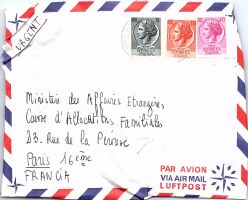 URGENT
Ministère des Affaires Etrangères
Caisse d'Allocations Familiales
23. Rue de la Pérouse
Paris 16ème
FRANCIA
PAR AVION
VIA AIR MAIL
LUFTPOST